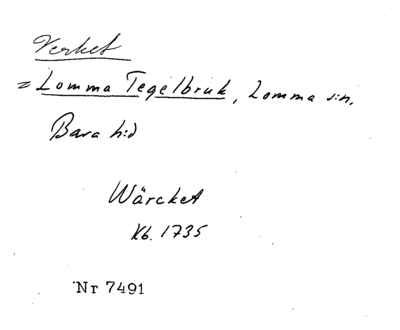 Verket
= Lomma Tegelbruk, Lomma sn,
Bara hd
Wärcket
Kb. 1735
Nr 7491